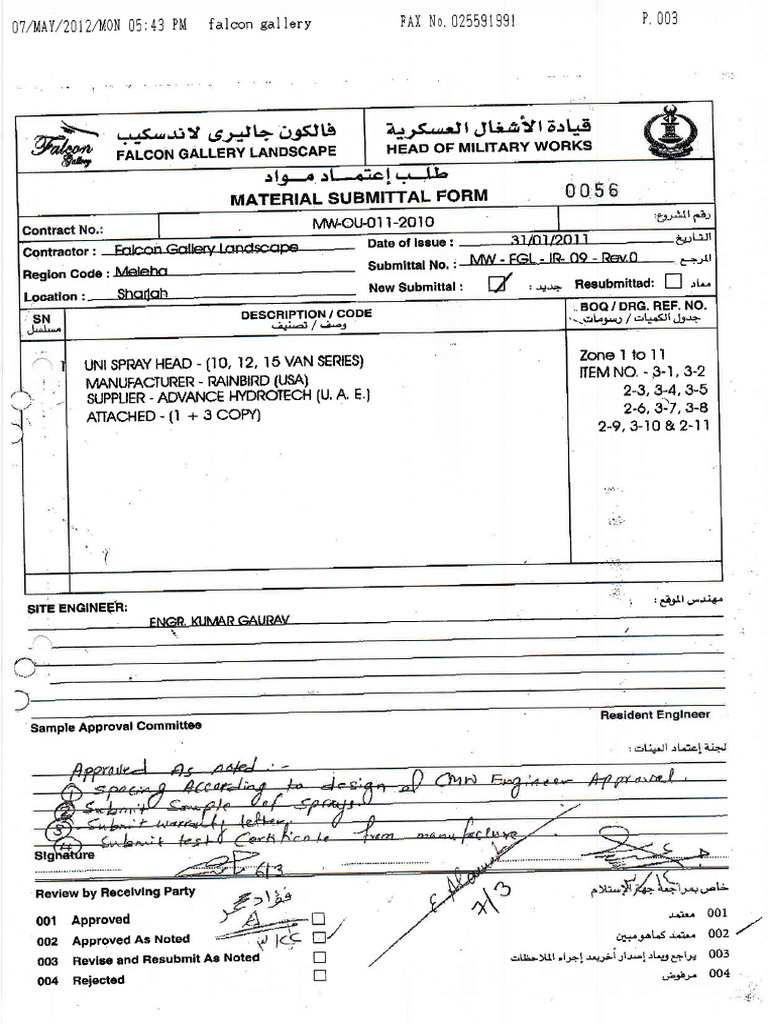 07/MAY/2012/MON 05:43 PM falcon gallery FAX No. 025591991 P. 003
Falcon Gallery
فالكون جاليرى لاندسكيب
FALCON GALLERY LANDSCAPE
قيادة الأشغال العسكرية
HEAD OF MILITARY WORKS
طلب إعتماد مواد
MATERIAL SUBMITTAL FORM 0056
Contract No.: MW-OU-011-2010 رقم المشروع:
Contractor : Falcon Gallery Landscape
Date of Issue : 31/01/2011 التاريخ
Region Code : Meleha
Submittal No. : MW - FGL - IR- 09 - Rev.0 المرجع
Location : Sharjah
New Submittal : جديد : Resubmittad: معاد
SN
مسلسل
DESCRIPTION / CODE
وصف / تصنيف
BOQ / DRG. REF. NO.
جدول الكميات / رسومات
1
UNI SPRAY HEAD - (10, 12, 15 VAN SERIES)
MANUFACTURER - RAINBIRD (USA)
SUPPLIER - ADVANCE HYDROTECH (U. A. E.)
ATTACHED - (1 + 3 COPY)
Zone 1 to 11
ITEM NO. - 3-1, 3-2
2-3, 3-4, 3-5
2-6, 3-7, 3-8
2-9, 3-10 & 2-11
SITE ENGINEER: مهندس الموقع :
ENGR. KUMAR GAURAV
Sample Approval Committee Resident Engineer
لجنة إعتماد العينات :
Approved As noted :-
1 Spacing According to design of CMW Engineer Approval.
2 Submit Sample of Sprays.
3 Submit warranty letter.
4 Submit test Certificate from manufacture
Signature
6/3
7/3
Review by Receiving Party
خاص بمراجعة جهة الإستلام
فؤاد
001 Approved
معتمد 001
002 Approved As Noted
معتمد كماهو مبين 002
003 Revise and Resubmit As Noted
يراجع ويعاد إصدار أخر بعد إجراء الملاحظات 003
004 Rejected
مرفوض 004